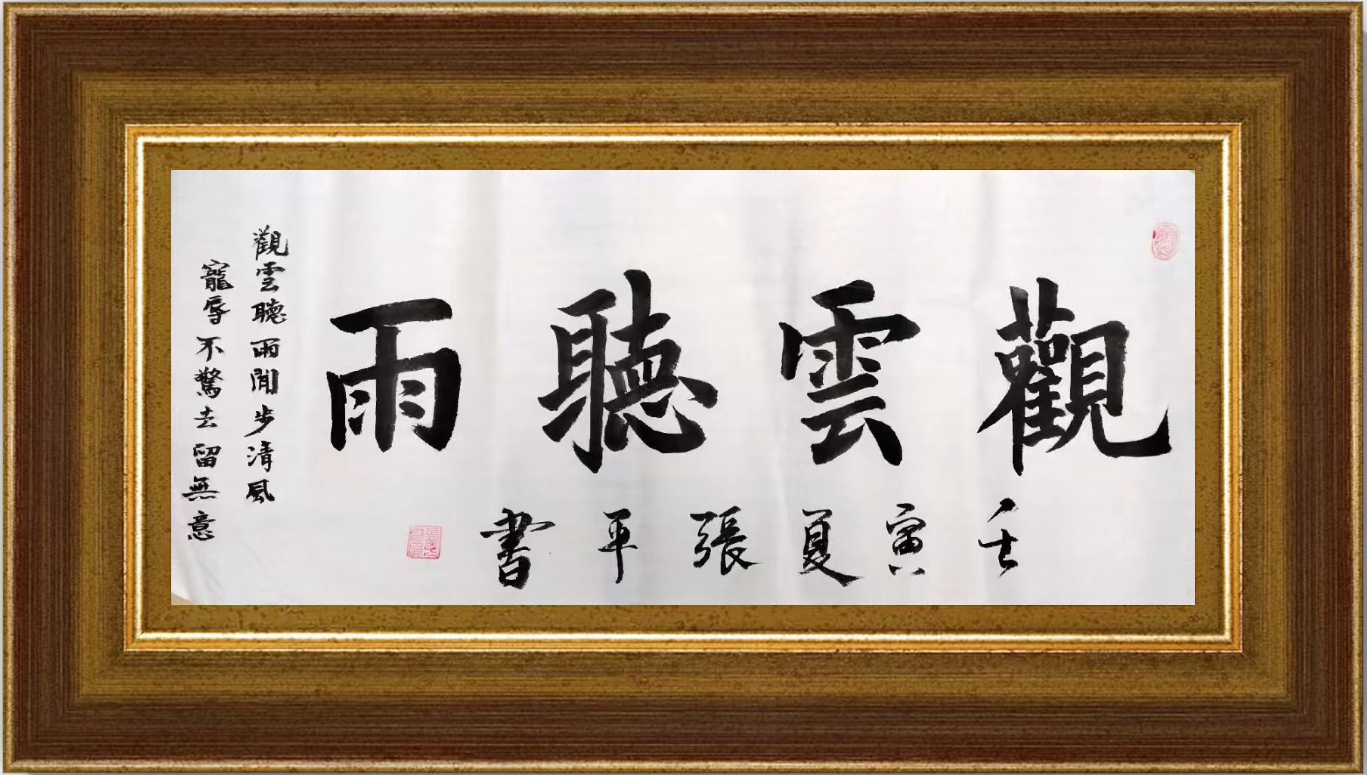 觀雲聽雨
壬寅夏張平書
觀雲聽雨閒步清風
寵辱不驚去留無意